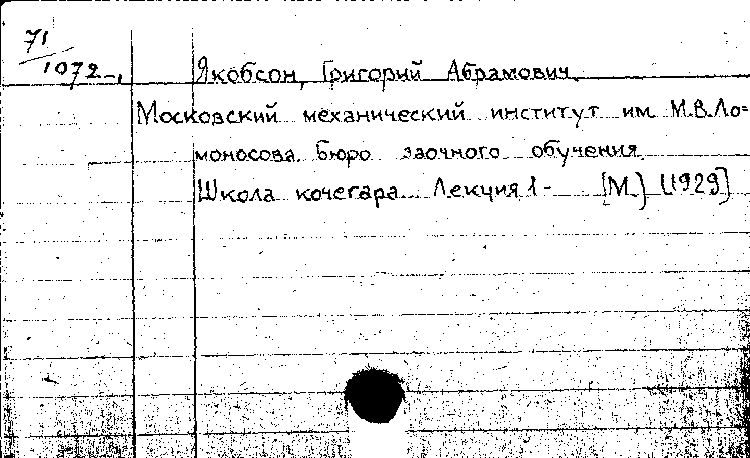 71
1072-1
Якобсон, Григорий Абрамович.
Московский механический институт им. М.В.Ло=
моносова. Бюро заочного обучения
Школа кочегара. Лекция 1- [М.] [1929]